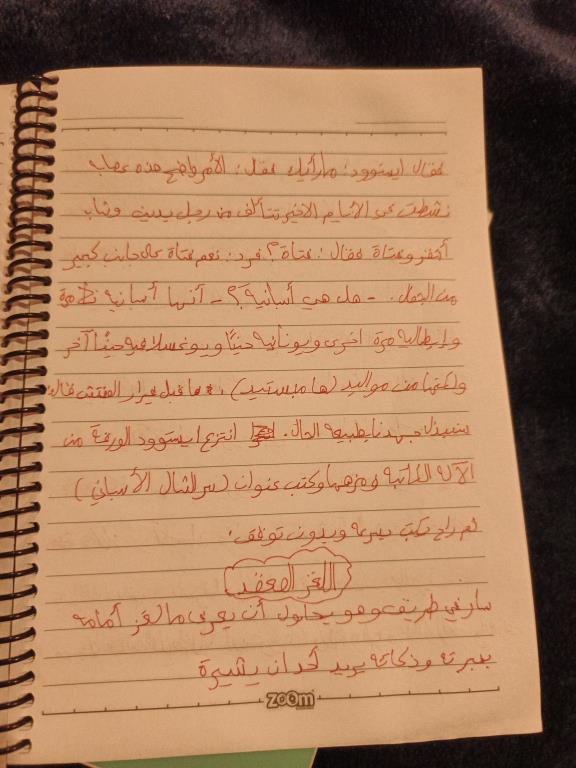 فقال ايستوود: ما رأيك فقل: الأمر واضح هذه عصابه
نشطت في الأيام الاخيره تتألف من رجل بدين وشاب
أشقر وفتاة فقال: فتاة؟ فرد: نعم فتاة على جانب كبير
من الجمال. - هل هي أسبانية؟ - أنها أسبانيه مرة
وايطاليه مرة اخرى ويونانيه حيناً ويوغسلافيه حيناً آخر
ولكنها من مواليد (هامبستيد). قبل فرار المفتش قال:
سنبذل جهدنا بطبيعه الحال. انتزع ايستوود الورقة من
الآلة الكاتبه ومزقها وكتب عنوان (سر الشال الأسباني)
ثم راح يكتب بسرعه وبدون توقف.
اللغز المعقد
سار في طريقه وهو يحاول أن يعرف ما لغز أمامه
وذكائه يريد أحد ان
zoom